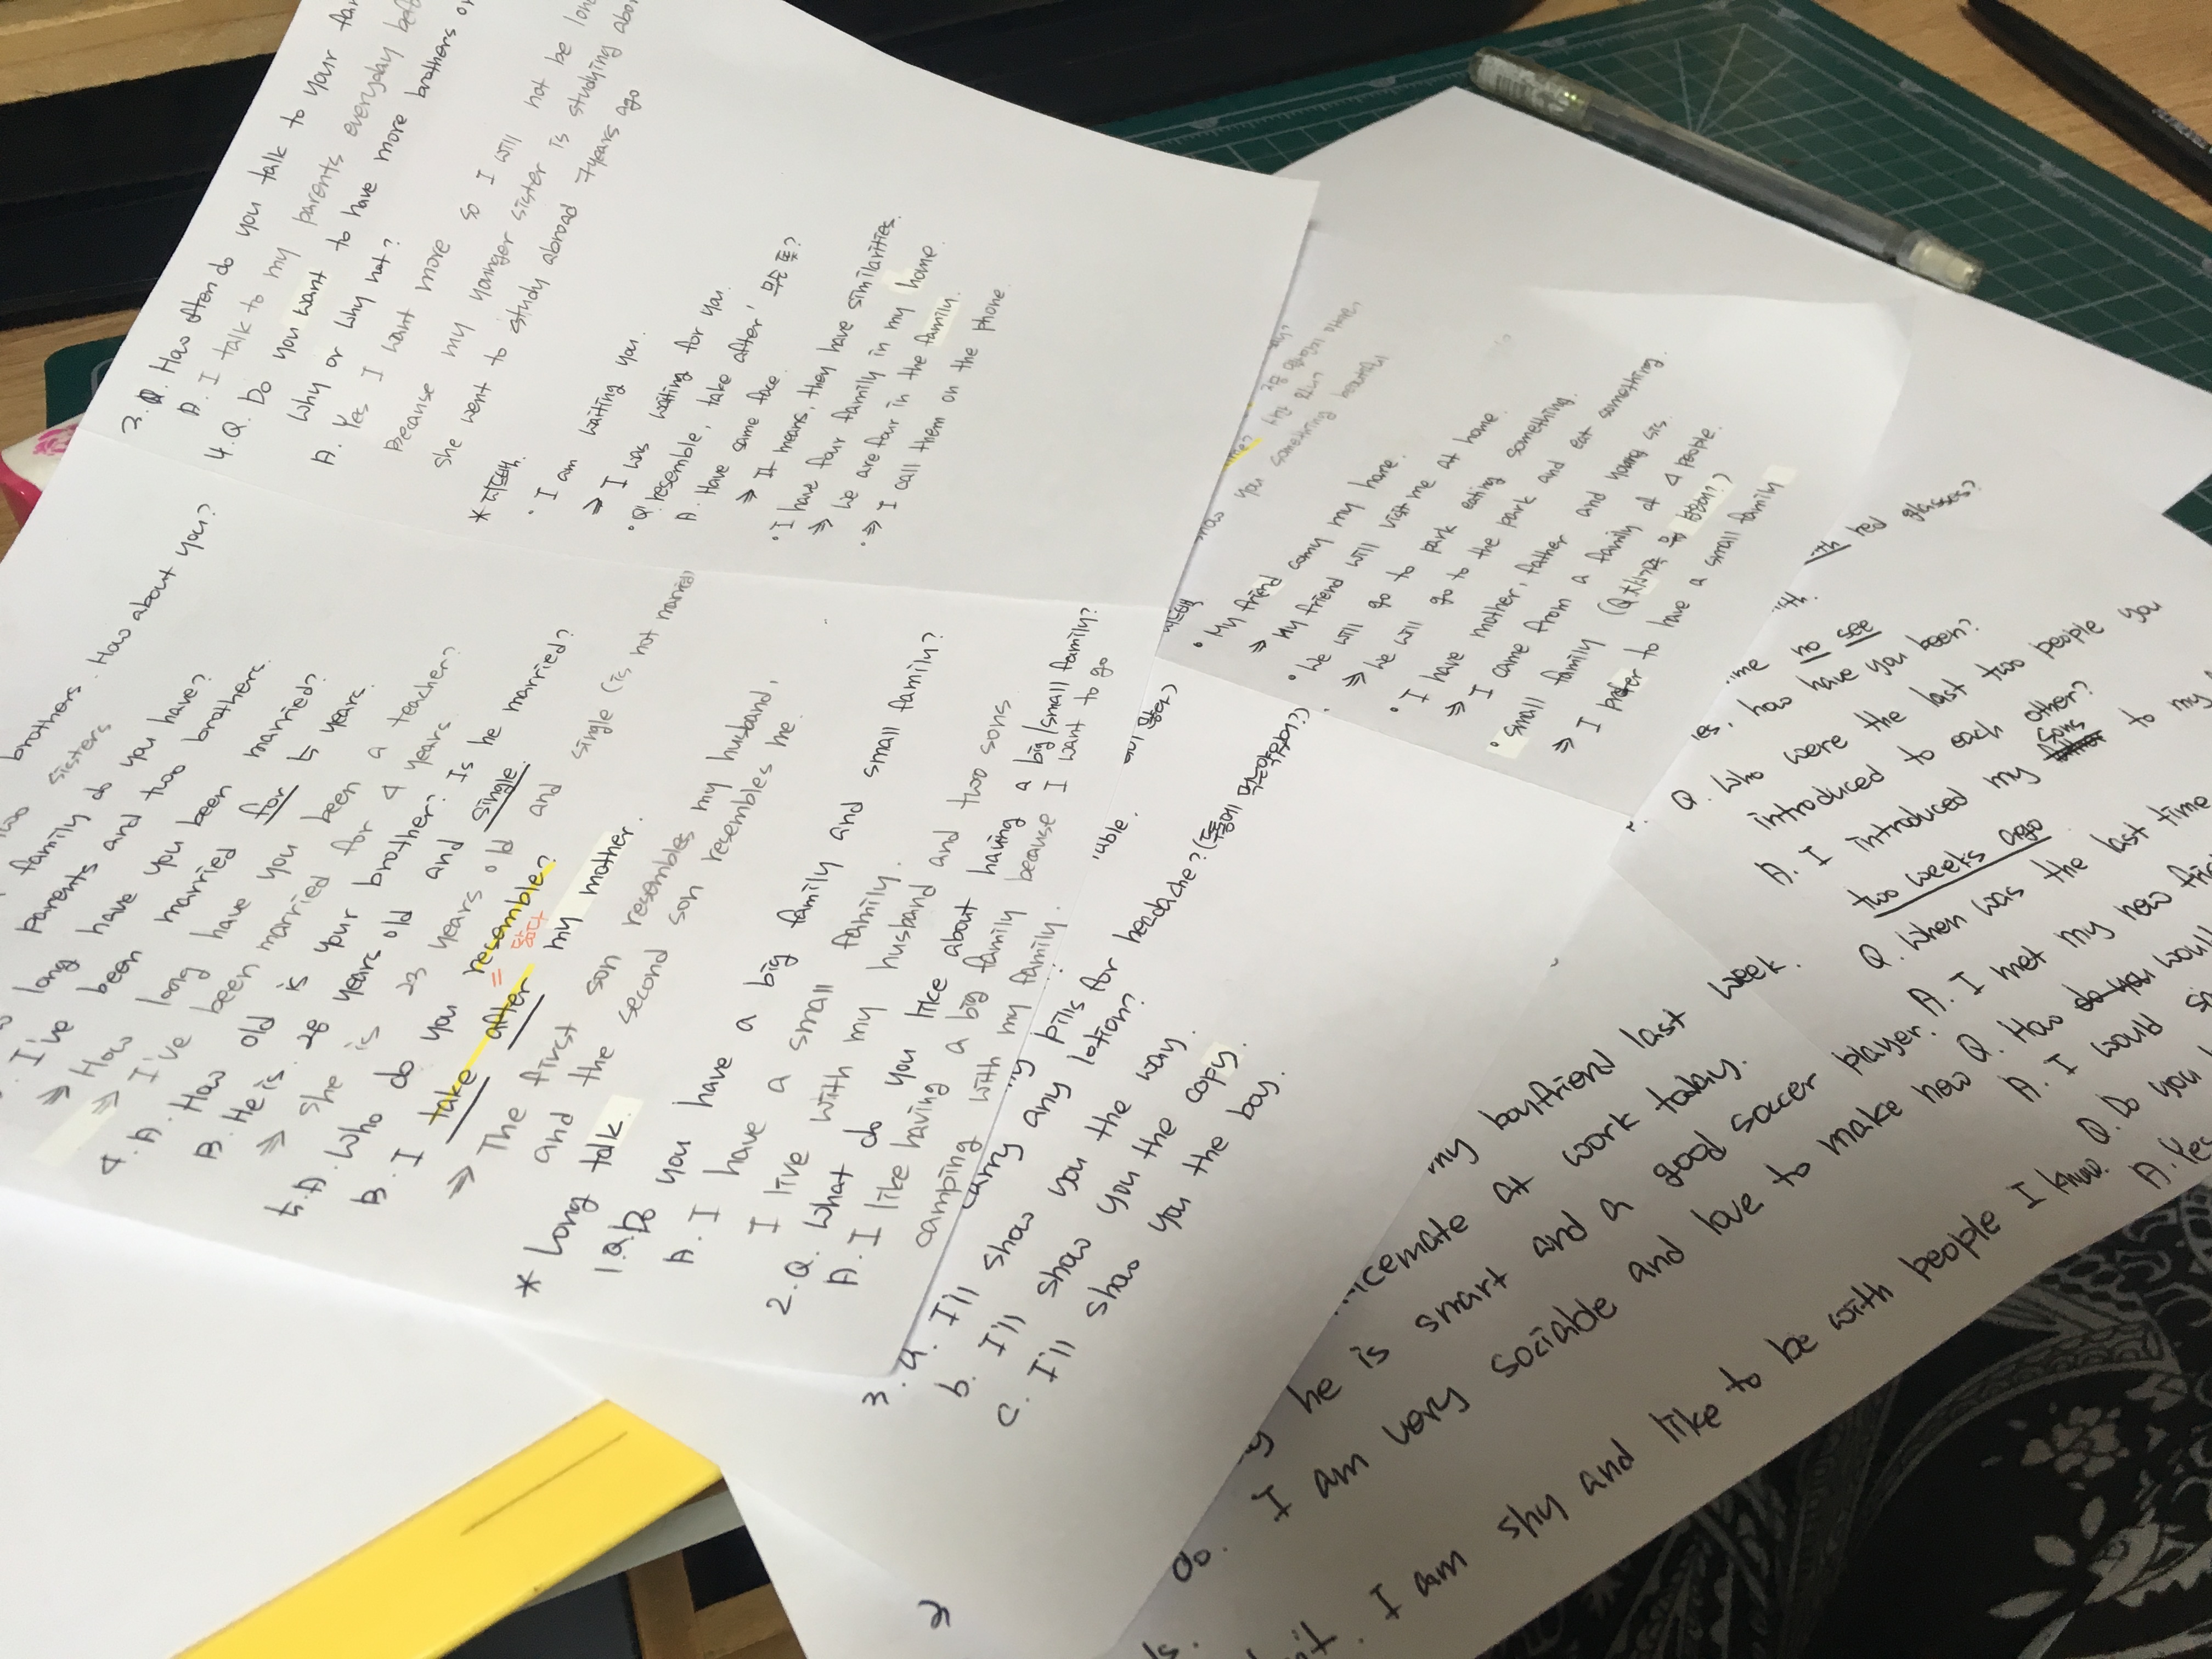 brothers. How about you?
two sisters
family do you have?
parents and two brothers.
long have you been married?
I've been married for 5 years.
⇒ How long have you been a teacher?
⇒ I've been married for 4 years
4. A. How old is your brother? Is he married?
B. He is 28 years old and single.
⇒ She is 23 years old and single (is not married)
5. A. Who do you resemble?
= 닮다
B. I take after my mother.
⇒ The first son resembles my husband,
and the second son resembles me.
* Long talk.
1. Q. Do you have a big family and small family?
A. I have a small family.
I live with my husband and two sons
2. Q. What do you like about having a big/small family?
A. I like having a big family because I want to go
camping with my family.
3. Q. How often do you talk to your
A. I talk to my parents everyday
4. Q. Do you want to have more brothers or
Why or why not?
A. Yes I want more so I will not be
Because my younger sister is studying
She went to study abroad 7years ago
* 피드백.
• I am waiting you.
⇒ I was waiting for you.
• Q. resemble, take after,
A. Have same face.
⇒ It means, they have similarities.
• I have four family in my home.
⇒ We are four in the family.
• ⇒ I call them on the phone.
you something
피드백
• My friend comy my home.
⇒ My friend will visit me at home.
• We will go to park eating something.
⇒ We will go to the park and eat something.
• I have mother, father and young sis.
⇒ I came from a family of 4 people.
• small family
⇒ I prefer to have a small family
pills for headache?
carry any lotion?
3. a. I'll show you the way.
b. I'll show you the copy.
c. I'll show you the bag.
red glasses?
me no see
how have you been?
Q. Who were the last two people you
introduced to each other?
A. I introduced my sons to my
two weeks ago
Q. When was the last time
A. I met my new
Q. How would
A. I would
Q. Do you
A. Yes
my boyfriend last week.
at work today.
he is smart and a good soccer player.
I am very sociable and love to make new
I am shy and like to be with people I know.